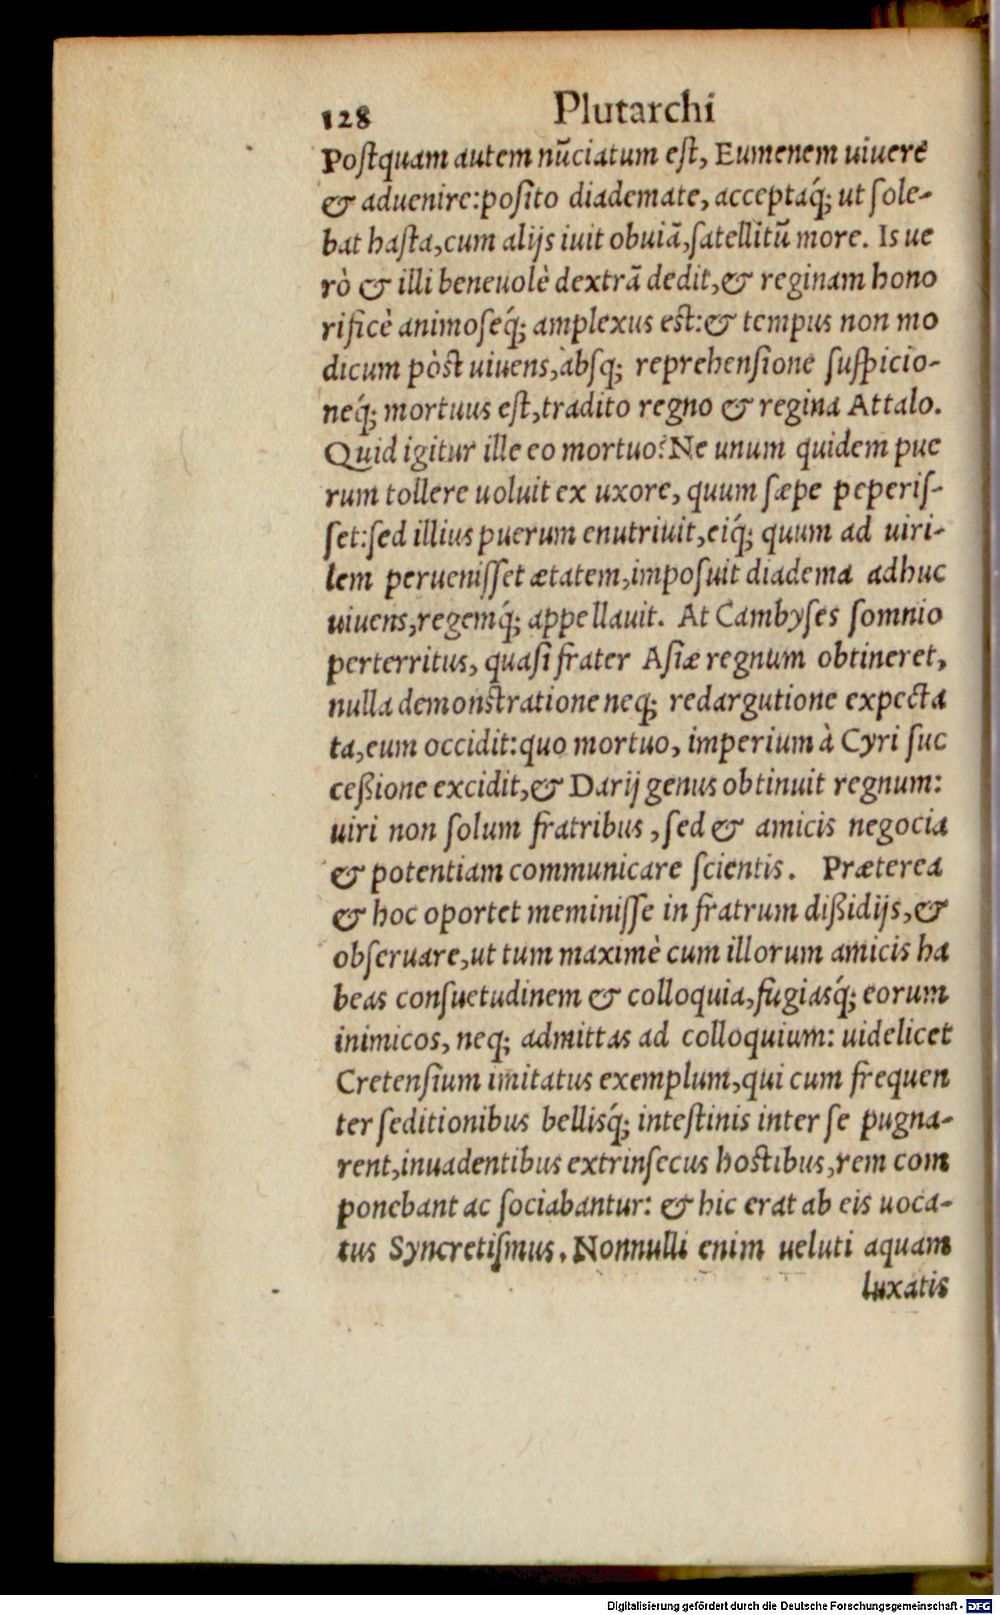 128 Plutarchi
Poſtquam autem nūciatum eſt, Eumenem uiuere
& aduenire: poſito diademate, acceptaq́; ut ſole-
bat haſta, cum alijs iuit obuiā, ſatellitū more. Is ue
rò & illi beneuolè dextrā dedit, & reginam hono
rificè animoſeq́; amplexus eſt: & tempus non mo
dicum pòſt uiuens, abſq; reprehenſione ſuſpicio-
neq́; mortuus eſt, tradito regno & regina Attalo.
Quid igitur ille eo mortuo? Ne unum quidem pue
rum tollere uoluit ex uxore, quum ſæpe peperiſ-
ſet: ſed illius puerum enutriuit, eiq́; quum ad uiri-
lem perueniſſet ætatem, impoſuit diadema adhuc
uiuens, regemq́; appellauit. At Cambyſes ſomnio
perterritus, quaſi frater Aſiæ regnum obtineret,
nulla demonſtratione neq; redargutione expecta
ta, eum occidit: quo mortuo, imperium à Cyri ſuc
ceßione excidit, & Darij genus obtinuit regnum:
uiri non ſolum fratribus, ſed & amicis negocia
& potentiam communicare ſcientis. Præterea
& hoc oportet meminiſſe in fratrum dißidijs, &
obſeruare, ut tum maximè cum illorum amicis ha
beas conſuetudinem & colloquia, fugiasq́; eorum
inimicos, neq; admittas ad colloquium: uidelicet
Cretenſium imitatus exemplum, qui cum frequen
ter ſeditionibus bellisq́; inteſtinis inter ſe pugna-
rent, inuadentibus extrinſecus hoſtibus, rem com
ponebant ac ſociabantur: & hic erat ab eis uoca-
tus Syncretiſmus. Nonnulli enim ueluti aquam
luxatis
Digitalisierung gefördert durch die Deutsche Forschungsgemeinschaft - DFG